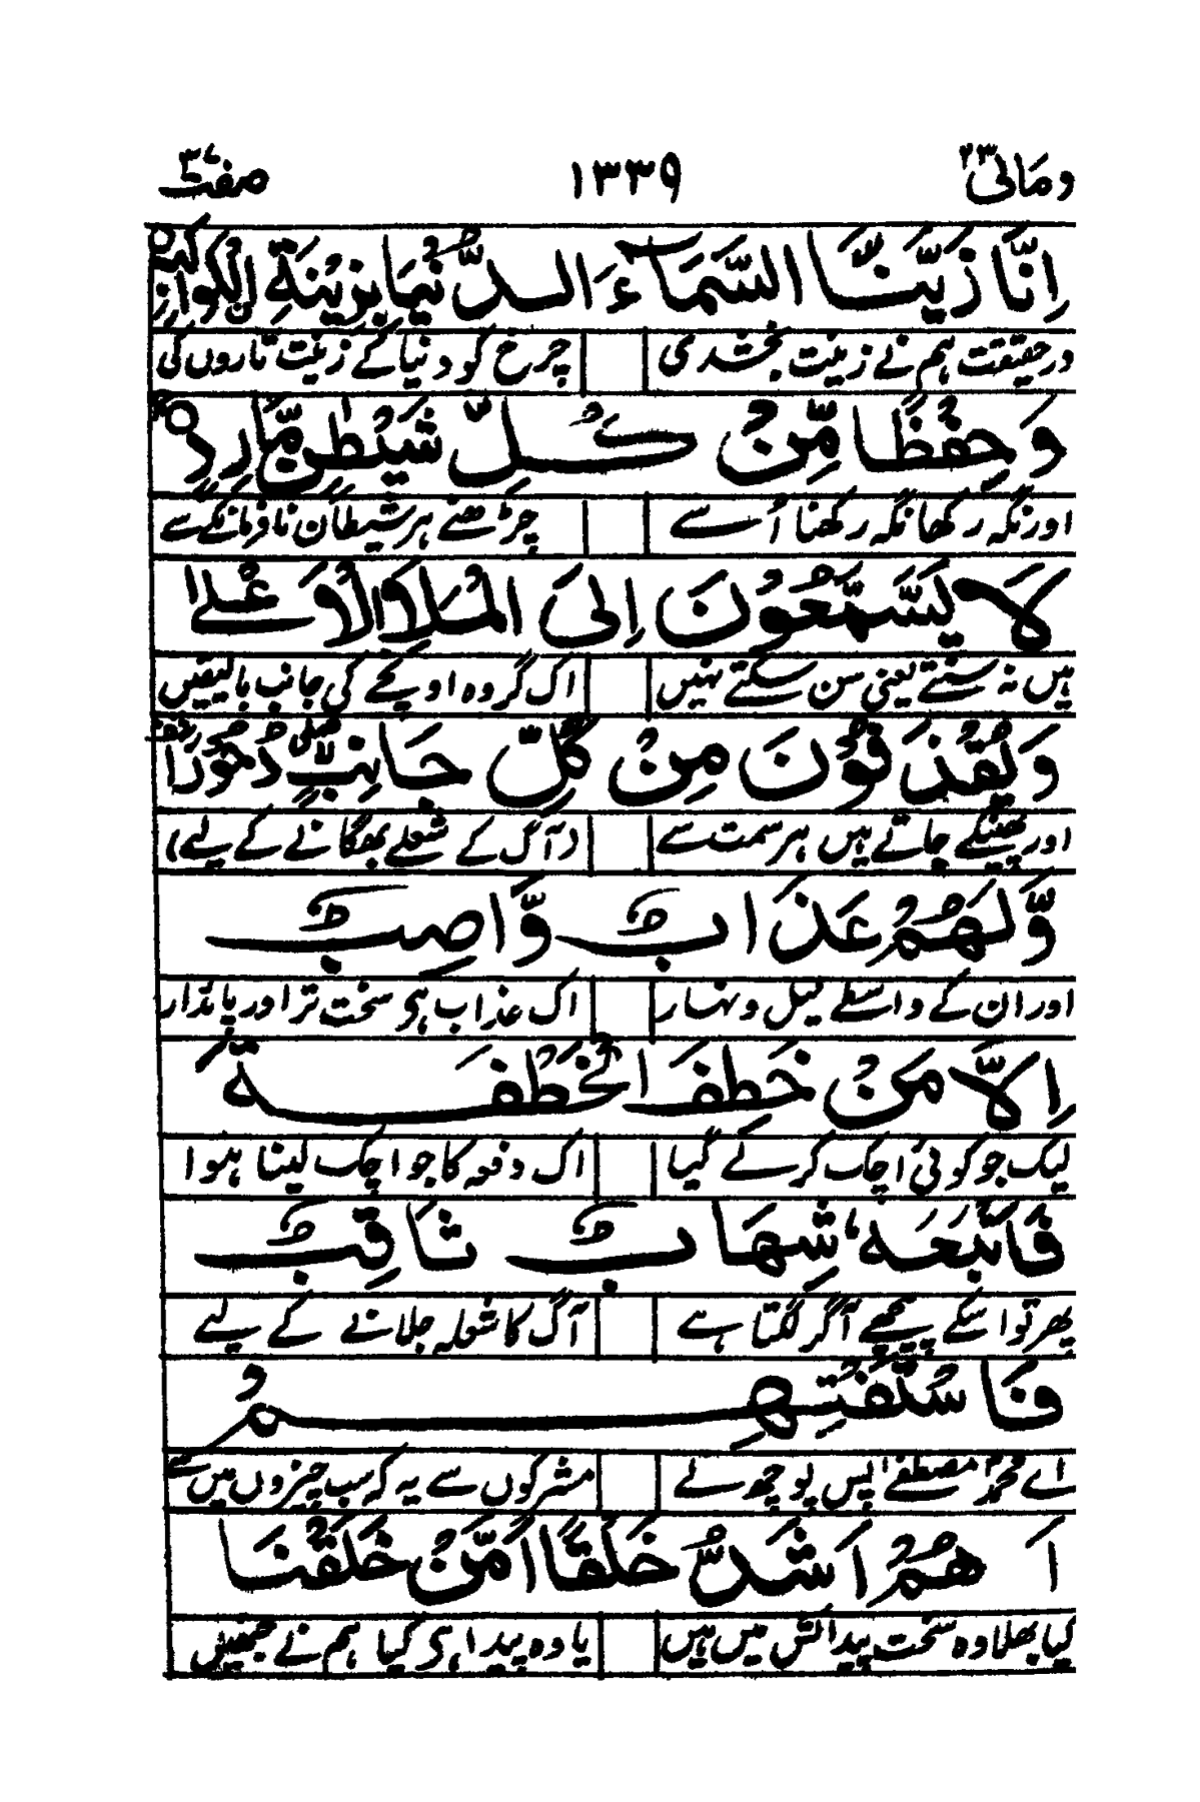 ومالی ۲۳ ۱۳۳۹ صفت ۳۷
اِنَّا زَيَّنَّا السَّمَآءَ الدُّنْيَا بِزِيْنَةِ ࣙالْكَوَاكِبِ
درحقیقت ہم نے زینت بخشدی چرخ کو دنیا کے زینت تاروں کی
وَحِفْظًا مِّنْ كُلِّ شَيْطٰنٍ مَّارِدٍ
اور نگہ رکھا نگہ رکھنا اُسے چڑھنے ہر شیطان نافرمانکے سے
لَا يَسَّمَّعُوْنَ اِلَى الْمَلَاِ الْاَعْلٰى
ہیں نہ سنتے یعنی سن سکتے نہیں اک گروہ اونچے کی جانب بالیقیں
وَيُقْذَفُوْنَ مِنْ كُلِّ جَانِبٍ دُحُوْرًا
اور پھینکے جاتے ہیں ہر سمت سے (آگ کے شعلے بھگانے کے لیے)
وَّلَهُمْ عَذَابٌ وَّاصِبٌ
اور ان کے واسطے لیل و نہار اک عذاب ہی سخت تر اور پائدار
اِلَّا مَنْ خَطِفَ الْخَطْفَةَ
لیک جو کوئی اچک کر لے گیا اک دفعہ کا جو اچک لینا ہوا
فَاَتْبَعَهٗ شِهَابٌ ثَاقِبٌ
پھر تو اسکے پیچھے آ کر لگتا ہے آگ کا شعلہ جلانے کے لیے
فَاسْتَفْتِهِمْ
اے محمدؐ مصطفےٰ پس پوچھ لے مشرکوں سے یہ کہ سب چیزوں میں سے
اَهُمْ اَشَدُّ خَلْقًا اَمَّنْ خَلَقْنَا
کیا بھلا وہ سخت پیدائش میں ہیں یا وہ پیدا ہی کیا ہم نے جنھیں